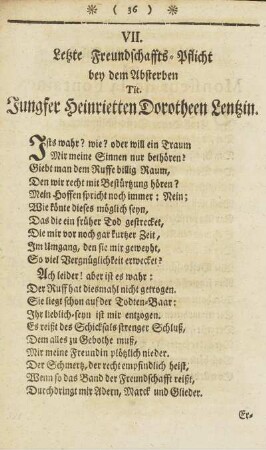 ( 36 )
VII.
Letzte Freundschaffts-Pflicht
bey dem Absterben
Tit.
Jungfer Heinrietten Dorotheen Lentzin.
Ists wahr? wie? oder will ein Traum
Mir meine Sinnen nur bethören?
Giebt man dem Ruffe billig Raum,
Den wir recht mit Bestürtzung hören?
Mein Hoffen spricht noch immer: Nein;
Wie könte dieses möglich seyn,
Das die ein früher Tod gestrecket,
Die mir vor noch gar kurtzer Zeit,
Im Umgang, den sie mir geweyht,
So viel Vergnüglichkeit erwecket?
Ach leider! aber ist es wahr:
Der Ruff hat diesmahl nicht getrogen.
Sie liegt schon auf der Todten-Baar:
Ihr lieblich-seyn ist mir entzogen.
Es reißt des Schicksals strenger Schluß,
Dem alles zu Gebothe muß,
Mir meine Freundin plötzlich nieder.
Der Schmertz, der recht empfindlich heist,
Wenn so das Band der Freundschafft reißt,
Durchdringt mir Adern, Marck und Glieder.
Er-